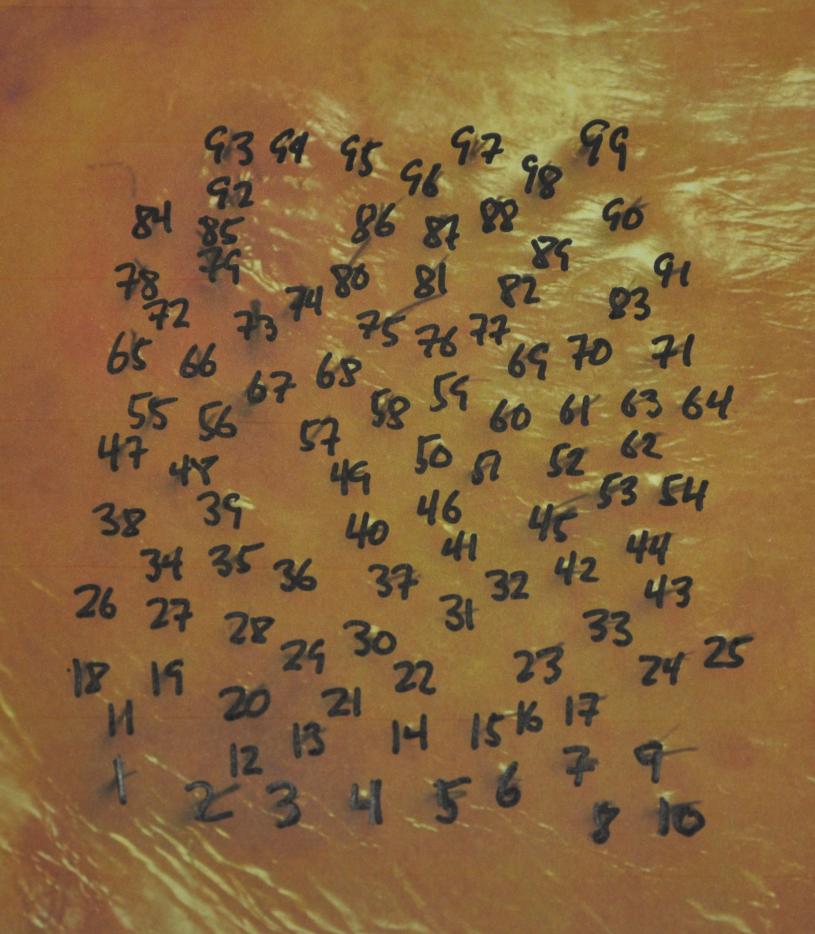 93 94 95 97 99
96 98
92
84 85 86 87 88 90
79 89
78 80 81 82 91
72 73 74 75 76 77 83
65 66 69 70 71
67 68 58 59
55 56 60 61 63 64
47 57 50 62
48 49 51 52
53 54
38 39 46
40 41 45 44
34 35 36 37 32 42 43
26 27 28 31 33
29 30 23 24 25
18 19 22
11 20 21 16 17
13 14 15
1 12 7 9
2 3 4 5 6
8 10